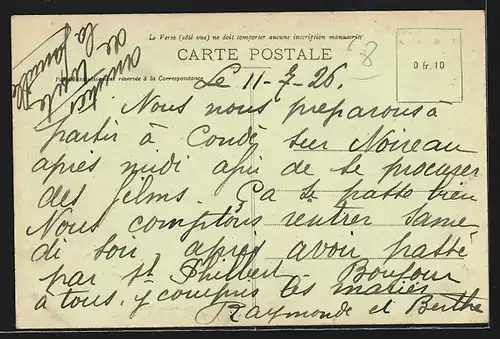 Le Verso (côté vue) ne doit comporter aucune inscription manuscrite
CARTE POSTALE
Partie exclusivement réservée à la Correspondance
0 fr. 10
8
amitiés
de la
famille
Le 11-8-26.
Nous nous préparons à
partir à Condé sur Noireau
après midi afin de se procurer
des films. Ça se passe bien
Nous comptons rentrer same-
di soir après avoir passé
par St Philbert - Bonjour
à tous, y compris les mariés
Raymonde et Berthe